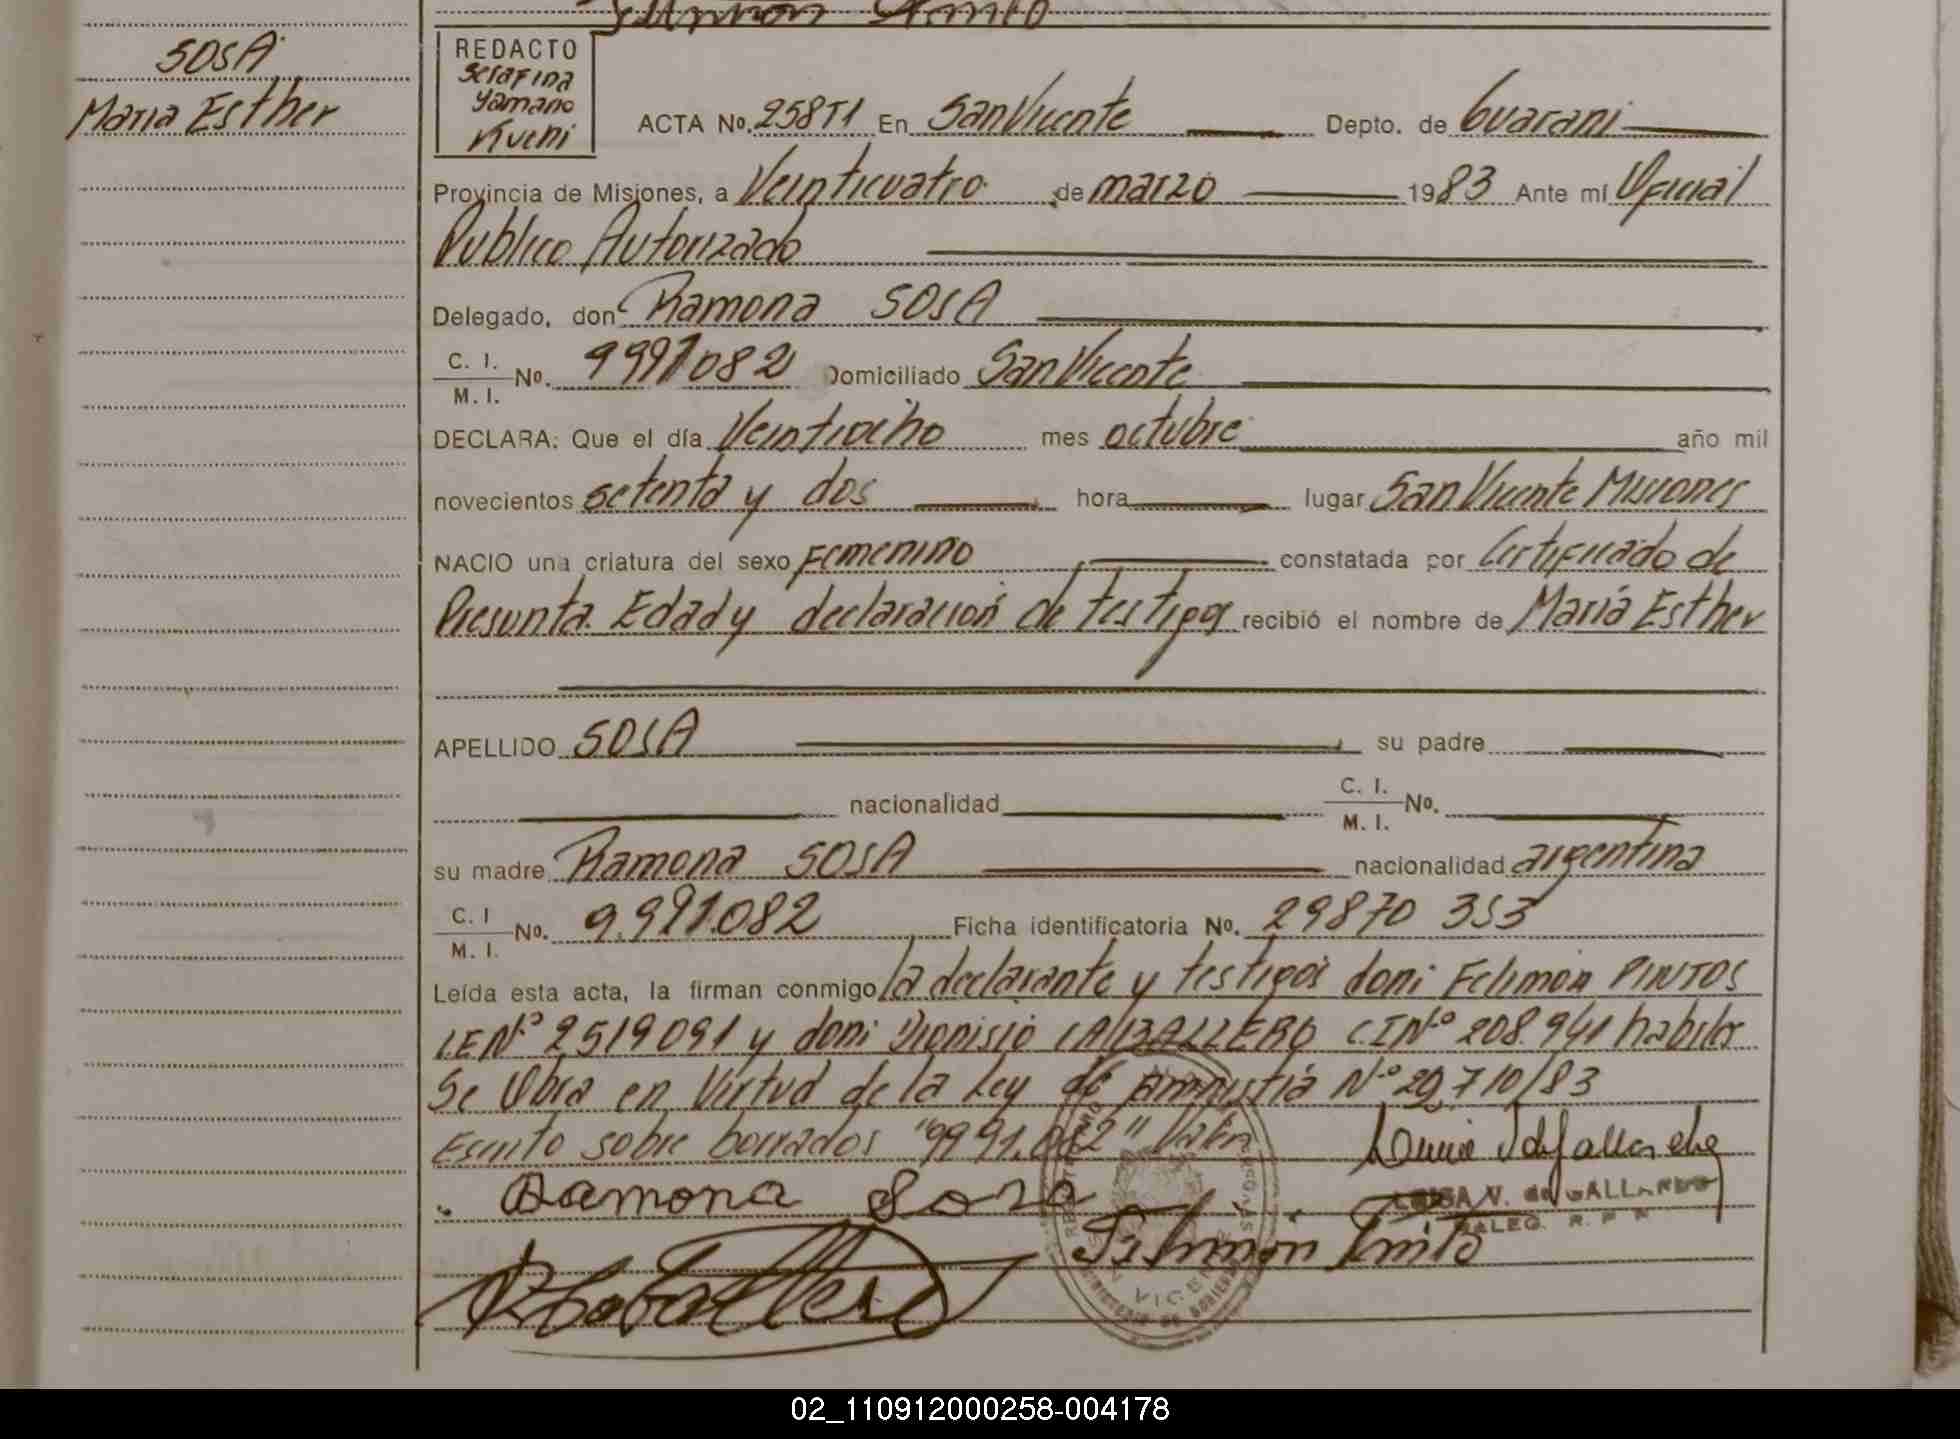 SOSA
Maria Esther
REDACTO
Serafina
Yamano
Kueni
ACTA No. 258T1 En San Vicente Depto. de Guarani
Provincia de Misiones, a Veinticuatro de marzo 1983 Ante mí Oficial
Publico Autorizado
Delegado, don Ramona SOSA
C. I.
M. I. No. 9991082 Domiciliado San Vicente
DECLARA: Que el día Veintiocho mes octubre año mil
novecientos setenta y dos hora lugar San Vicente Misiones
NACIO una criatura del sexo Femenino constatada por Certificado de
Presunta Edad y declaración de testigos recibió el nombre de María Esther
APELLIDO SOSA su padre
nacionalidad C. I.
M. I. No.
su madre Ramona SOSA nacionalidad argentina
C. I
M. I. No. 9.991.082 Ficha identificatoria No. 29870 353
Leída esta acta, la firman conmigo la declarante y testigos doni Felimón PINTOS
LE Nº 2519091 y doni Dionisio CABALLERO C.I Nº 208.941 habiles
Se Obra en Virtud de la Ley de amnistía Nº 22.710/83
Escrito sobre borrados "9991.082" Vale
Ramona Sosa
LUISA V. de GALLARDO
DELEG. R. P. P.
VICENTE